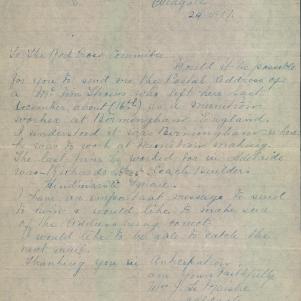 To The Red Cross Committee
Would it be possible
for you to send me the Postal Address of
a Mr Tom who left here last
December about (16th) as a munition
worker at Birmingham England.
I understood it was Birmingham where
he was to work at munition making.
The last firm he worked for in Adelaide
was Richards Coach Builders
Hindmarsh Square.
I have an important message to send
to him & would like to make sure
of the Address being correct.
I would like to be able to catch the
next mail.
Thanking you in Anticipation
I am yours faithfully